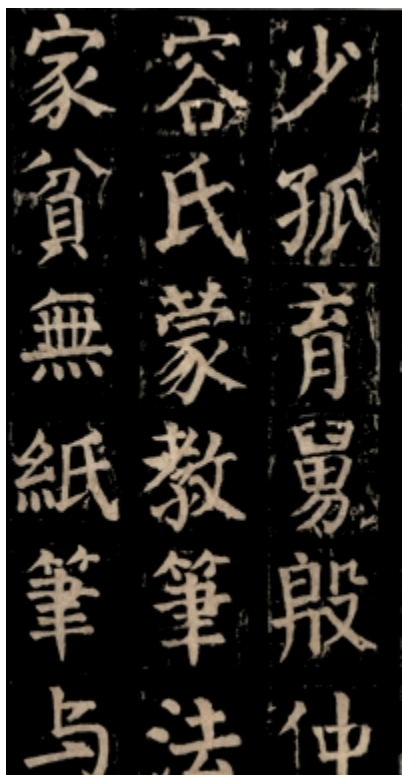 少孤育舅殷仲
容氏蒙教筆法
家貧無紙筆与